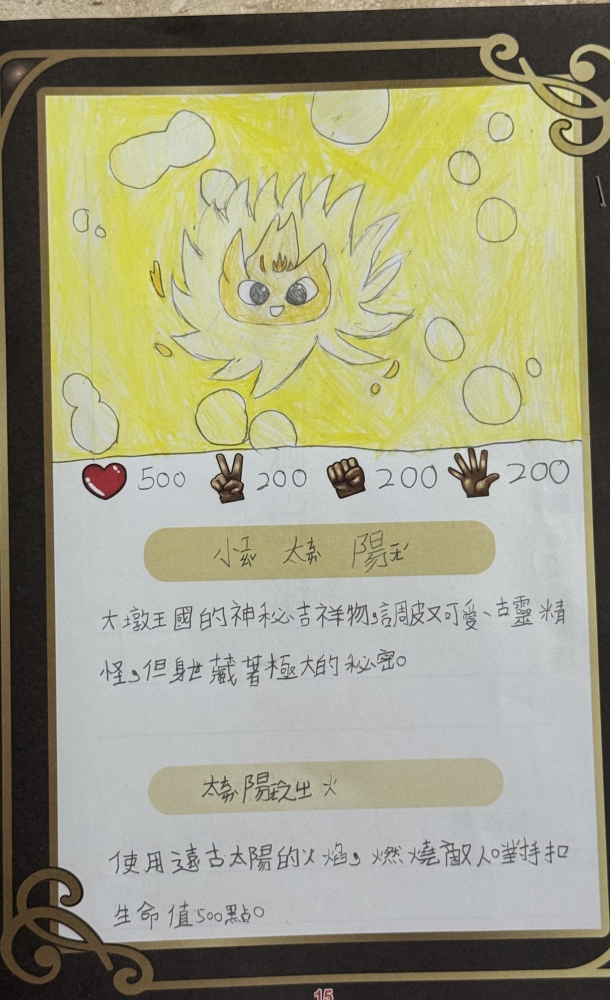 500 200 200 200
小 太 陽
大墩王國的神秘吉祥物,調皮又可愛、古靈精
怪,但身世藏著極大的秘密。
太陽 火
使用遠古太陽的火焰,燃燒敵人。對手扣
生命值500點。
15